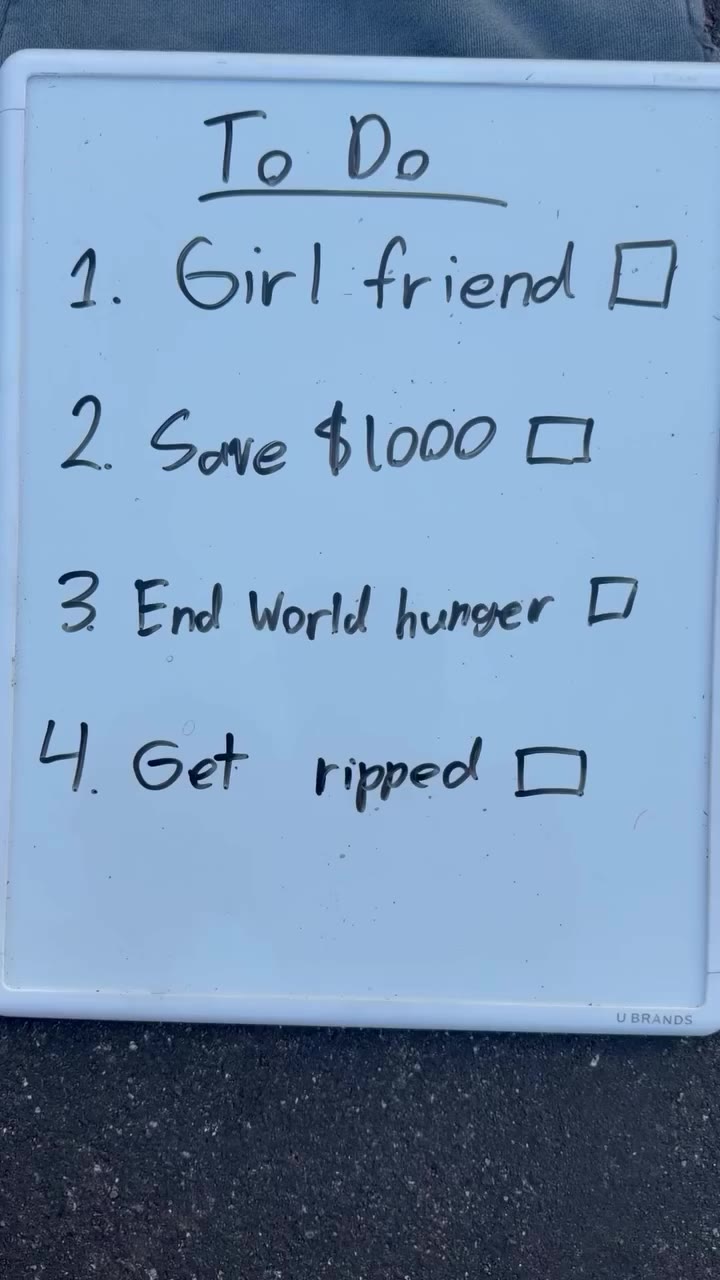 To Do
1. Girl friend ☐
2. Save $1000 ☐
3. End World hunger ☐
4. Get ripped ☐
U BRANDS